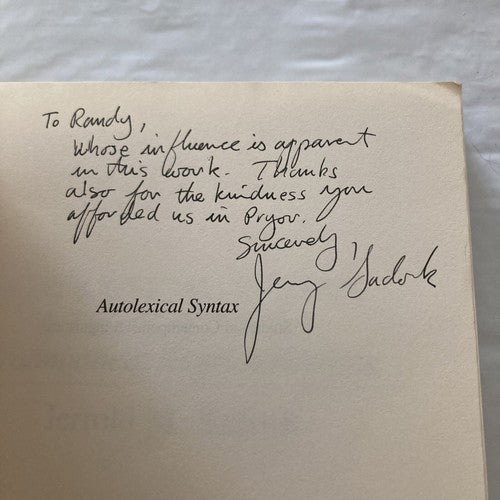 To Randy,
whose influence is apparent
in this work. Thanks
also for the kindness you
afforded us in Pryor.
Sincerely,
Jerry Sadock
Autolexical Syntax